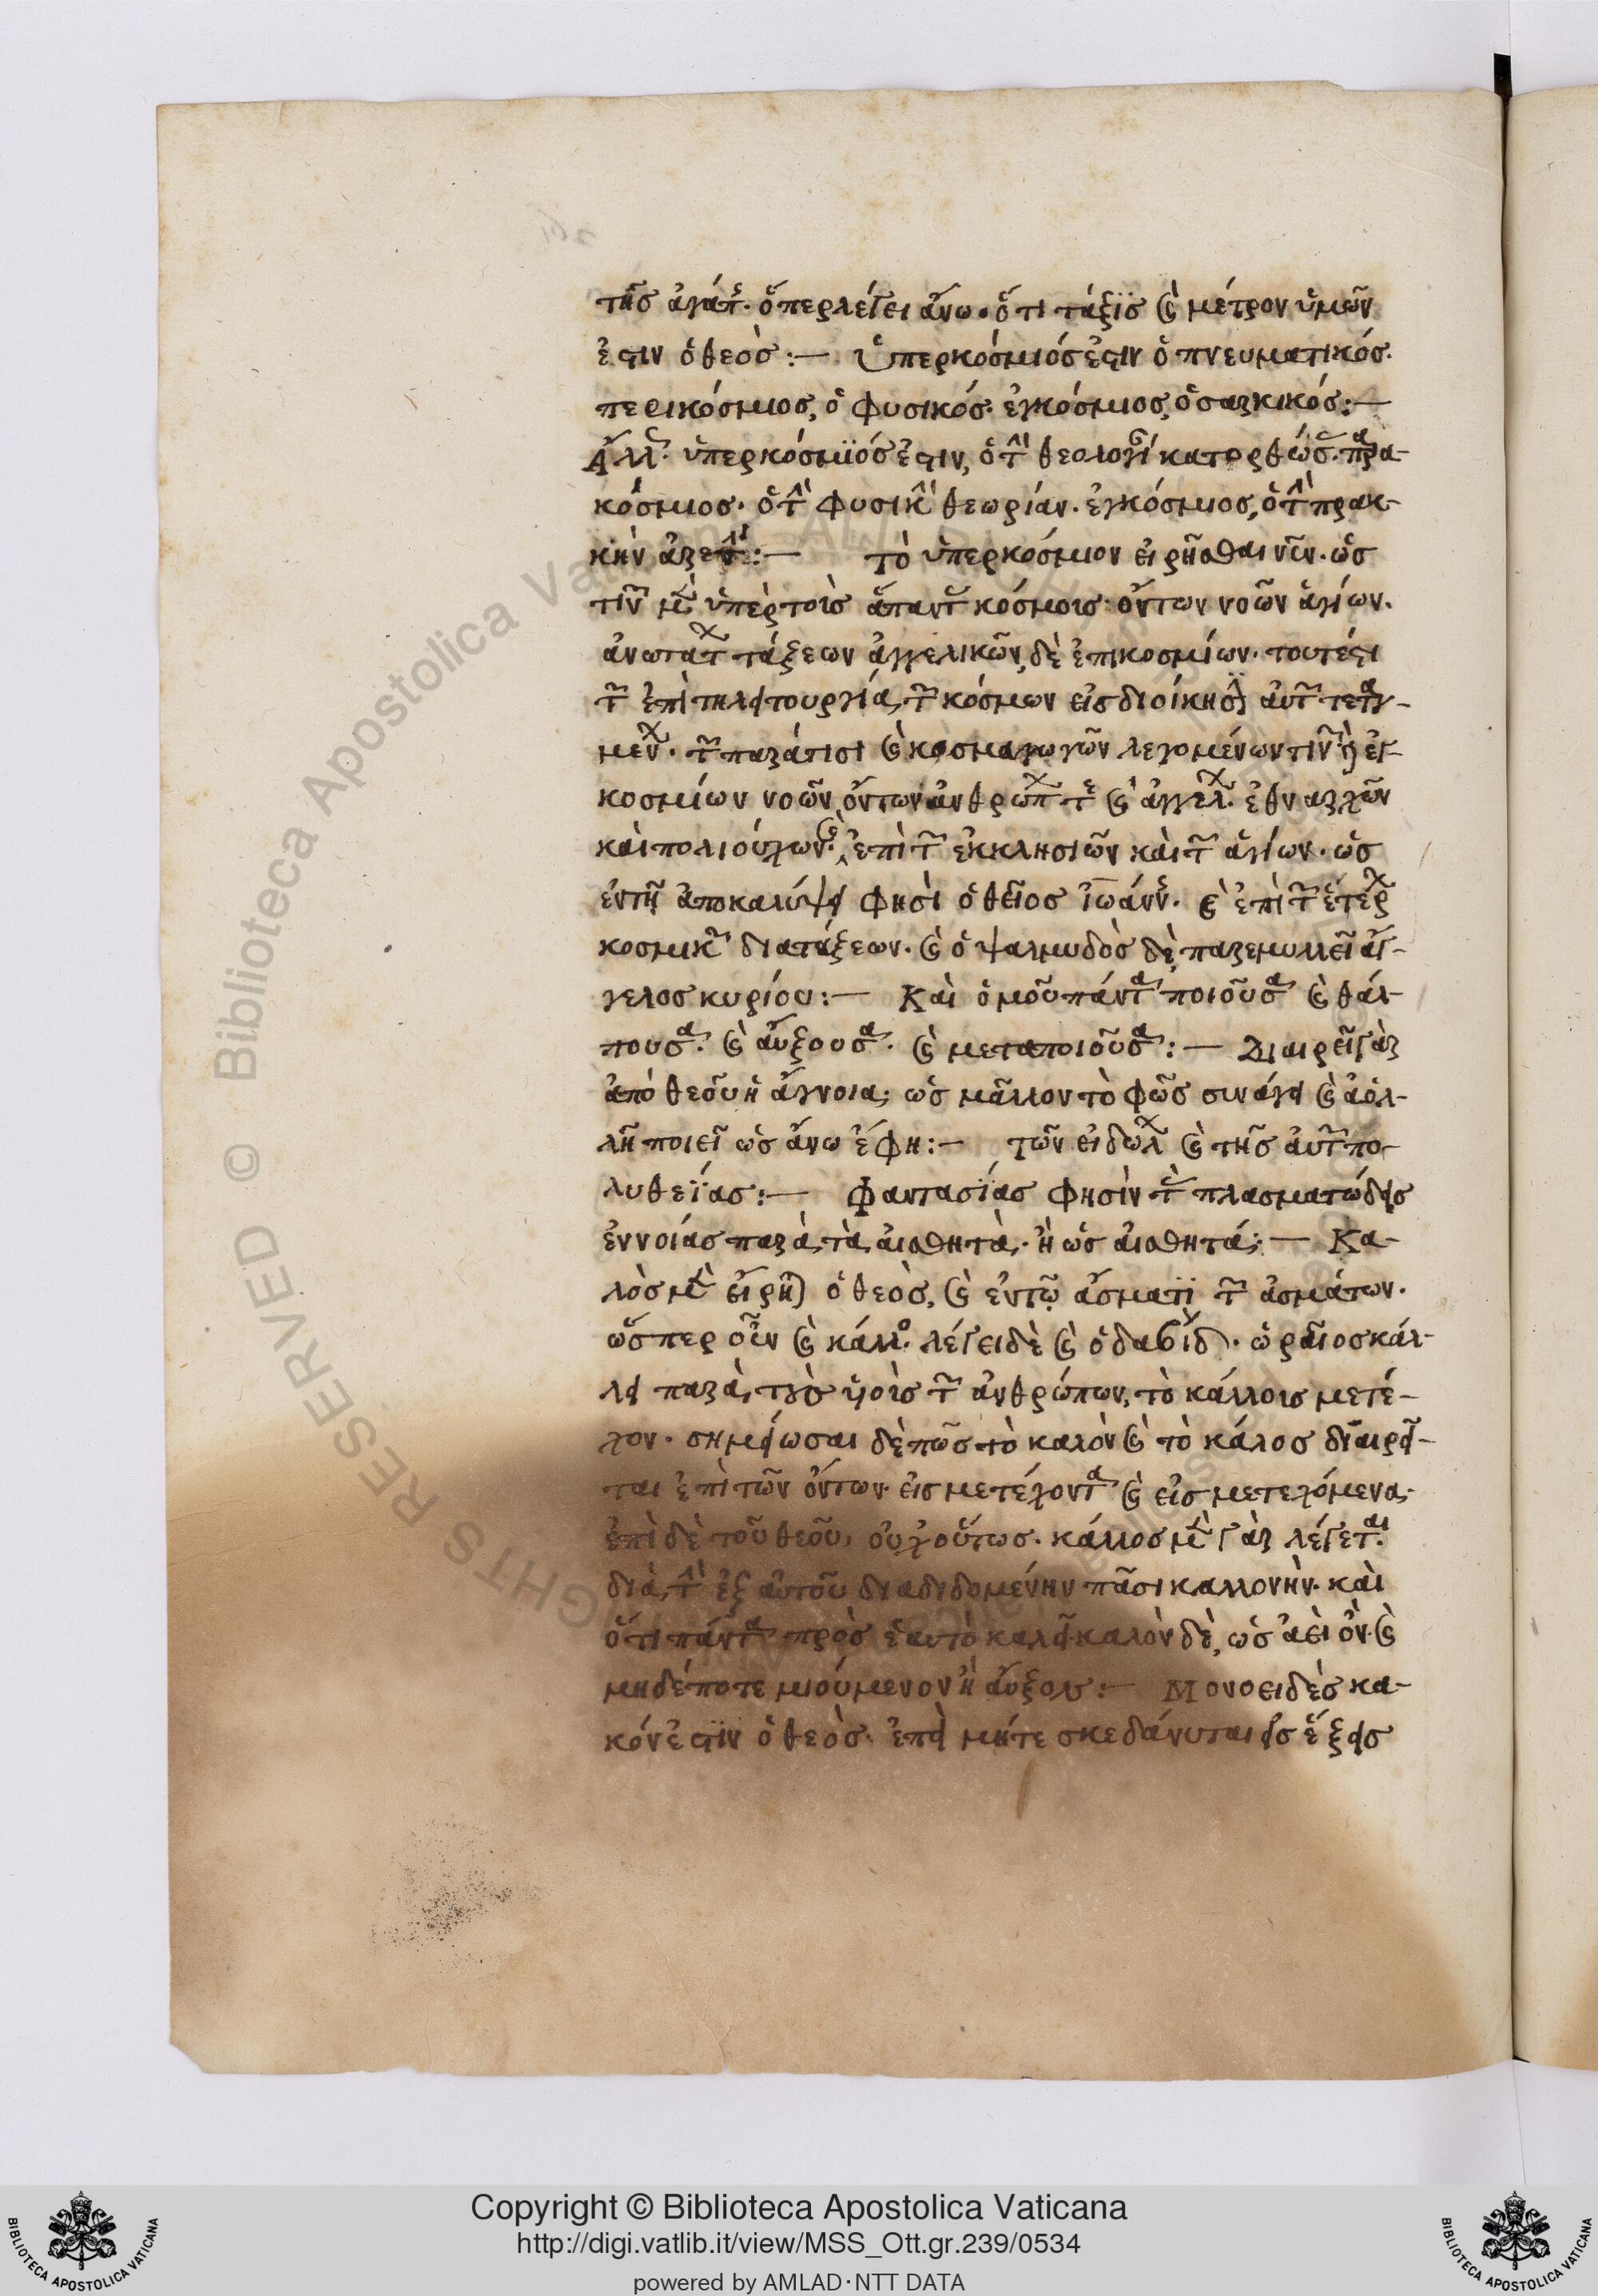 τῆς ἀγάπης. ὅπερ λέγει ἄνω. ὅτι τάξϊς καὶ μέτρον ὑμῶν
ἐστιν ὁ θεὸς :— Ὑπερκόσμιός ἐστιν ὁ πνευματικός.
περικόσμιος, ὁ φυσικός. ἐγκόσμιος, ὁ σαρκικός :—
Ἄλλ. ὑπερκόσμϊός ἐστιν, ὁ τὴν θεολογί κατορθώσ.
κόσμιος. ὁ τὴν φυσικὴν θεωρίαν. ἐγκόσμιος, ὁ τὴν πρακ-
κὴν :— τὸ ὑπερκόσμιον εἰρῆσθαι νῦν. ὡς
τιν μὲν ὑπὲρ τοῖς ἅπαντ κόσμοις ὄντων νοῶν ἁγίων.
ἀνωτάτ τάξεων ἀγγελικῶν, δὲ ἐπικοσμίων. τουτέστι
τῶν ἐπὶ τῆ λειτουργία, τῶν κόσμων εἰς διοίκησιν αὐτῶν τεταγ-
μένων. τῶν παρά τισι καὶ κοσμαγωγῶν λεγομένων τιν ἐγ-
κοσμίων νοῶν, ὄντων ἀνθρώπων τε καὶ ἀγγέλων. ἐθναρχῶν
καὶ πολιούχων. καὶ ἐπὶ τῶν ἐκκλησιῶν καὶ τῶν ἁγίων. ὡς
ἐν τῇ ἀποκαλύψει φησὶ ὁ θεῖος ἰωάνν. καὶ ἐπὶ τῶν ἑτέρων
κοσμικῶν διατάξεων. καὶ ὁ ψαλμωδὸς δὲ, παρεμβαλεῖ ἄγ-
γελος κυρίου :— Καὶ ὁμοῦ πάντα ποιοῦσα καὶ θάλ-
πουσα. καὶ αὔξουσα. καὶ μεταποιοῦσα :— Διαιρεῖ γὰρ
ἀπὸ θεοῦ ἡ ἄγνοια; ὡς μᾶλλον τὸ φῶς συνάγει καὶ ἀολ-
λῆ ποιεῖ ὡς ἄνω ἔφη :— τῶν εἰδώλων καὶ τῆς αὐτῶν πο-
λυθεΐας :— Φαντασίας φησὶν τὰς πλασματώδεις
ἐννοίας παρὰ, τὰ, αἰσθητὰ, ἢ ὡς αἰσθητά; — Κα-
λὸς μὲν εἴρηται ὁ θεὸς, καὶ ἐν τῷ ἄσματϊ τῶν ἀσμάτων.
ὥσπερ οὖν καὶ κάλλος. λέγει δὲ καὶ ὁ δαβίδ. ὡραῖος κάλ-
λει παρὰ, τοὺς υἱοὺς τῶν ἀνθρώπων, τὸ κάλλοις μετέ-
χον. σημείωσαι δὲ πῶς τὸ καλὸν καὶ τὸ κάλος διαιρεῖ-
ται ἐπὶ τῶν ὄντων. εἰς μετέχοντα καὶ εἰς μετεχόμενα.
ἐπὶ δὲ τοῦ θεοῦ, οὐχ οὕτως. κάλλος μὲν γὰρ λέγεται.
διὰ, τὴν ἐξ αὐτοῦ διαδιδομένην πᾶσι καλλονὴν. καὶ
ὅτι πάντα πρὸς ἑαυτὸ καλεῖ. καλὸν δὲ, ὡς ἀεὶ ὂν. καὶ
μηδέποτε μιούμενον ἢ αὖξον :— Μονοειδὲς κα-
κόν ἐστϊν ὁ θεὸς. ἐπεὶ μήτε σκεδάνυται εἰς ἕξεις
Copyright © Biblioteca Apostolica Vaticana
http://digi.vatlib.it/view/MSS_Ott.gr.239/0534
powered by AMLAD·NTT DATA